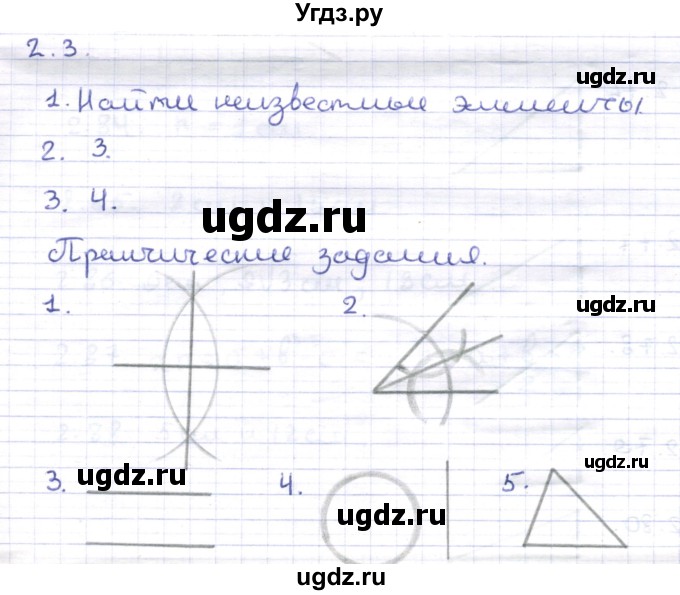 Угдз.ру
2.3.
ugdz.ru
1. Найти неизвестные элементы
2. 3.
ugdz.ru
3. 4.
ugdz.ru
Практические задания.
1.
2.
ugdz.ru
3.
ugdz.ru
4.
ugdz.ru
5.
ugdz.ru
ugdz.ru